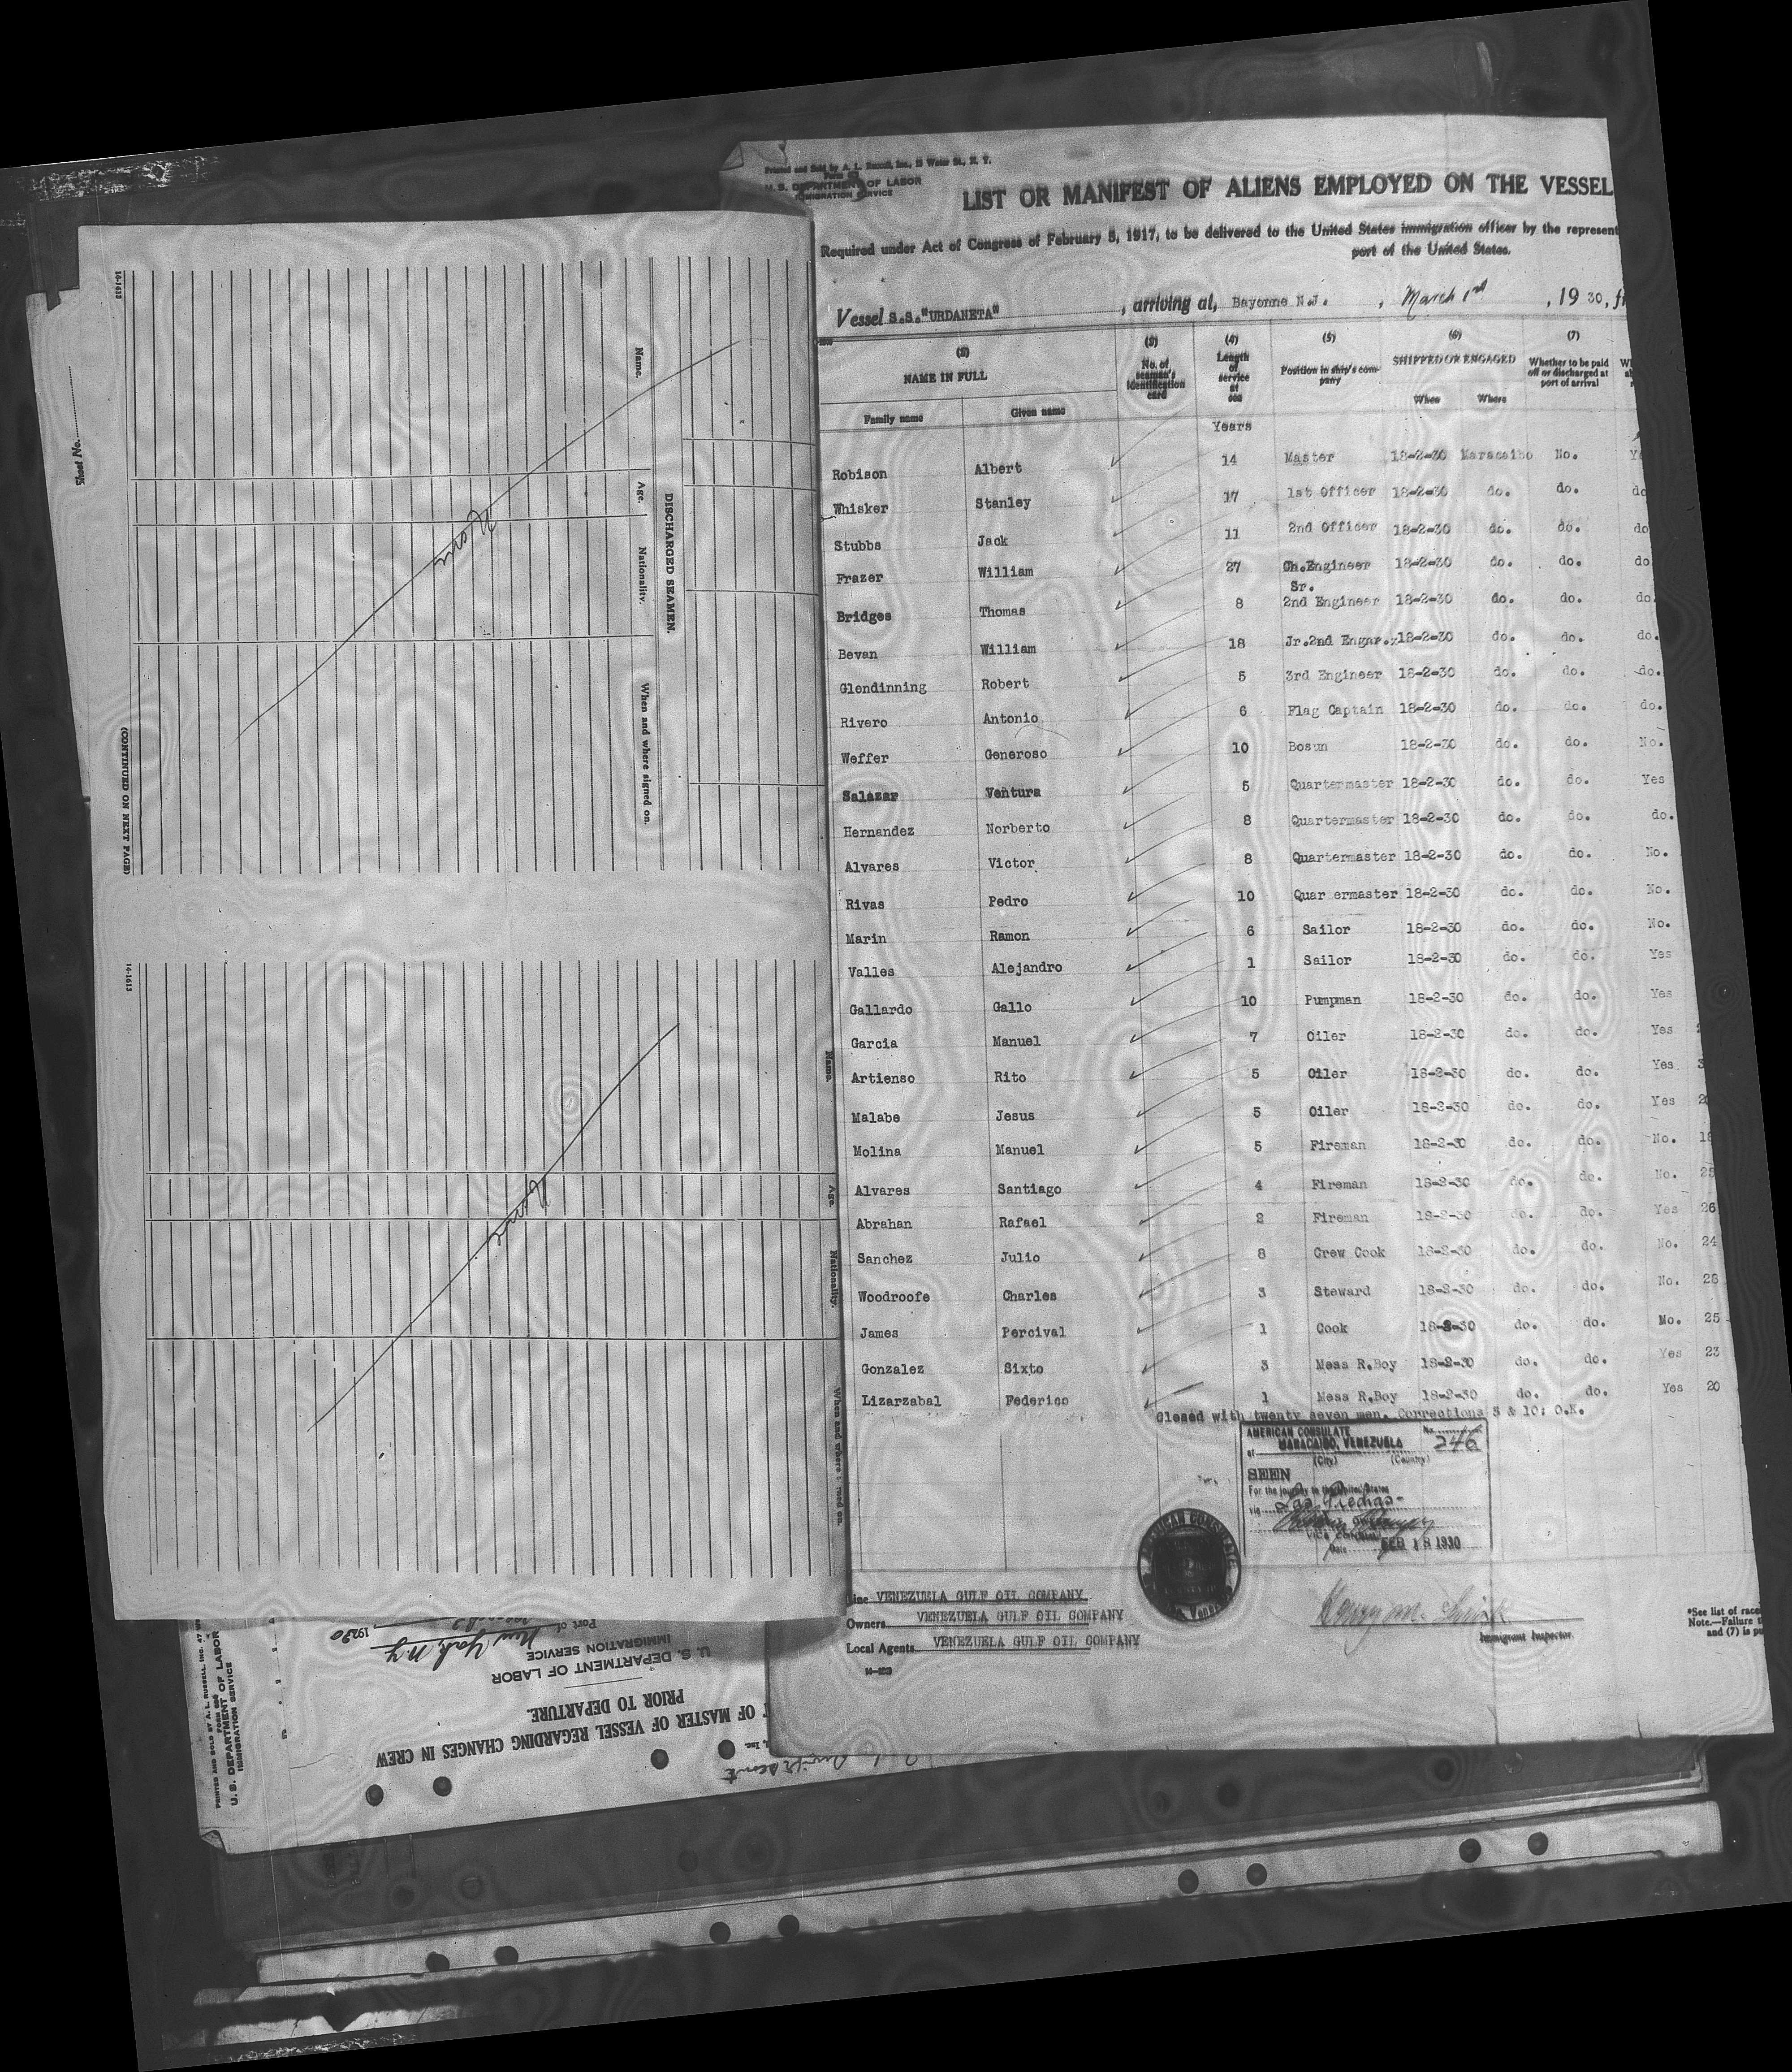 Printed and Sold by A. L. Russell, Inc., 15 Water St., N. Y.
U. S. DEPARTMENT OF LABOR
IMMIGRATION SERVICE
LIST OR MANIFEST OF ALIENS EMPLOYED ON THE VESSEL
Required under Act of Congress of February 5, 1917, to be delivered to the United States immigration officer by the represent
port of the United States.
Vessel S.S."URDANETA", arriving at, Bayonne N.J., March 1st, 19 30, f
(2) NAME IN FULL (3) No. of seaman's identification card (4) Length of service at sea (5) Position in ship's company (6) SHIPPED OR ENGAGED (7) Whether to be paid off or discharged at port of arrival
Family name Given name When Where
Years
Robison Albert 14 Master 18-2-30 Maracaibo No. Ye
Whisker Stanley 17 1st Officer 18-2-30 do. do. do
Stubbs Jack 11 2nd Officer 18-2-30 do. do. do
Frazer William 27 Ch.Engineer 18-2-30 do. do. do
Sr.
Bridges Thomas 8 2nd Engineer 18-2-30 do. do. do.
Bevan William 18 Jr.2nd Engnr. 18-2-30 do. do. do.
Glendinning Robert 5 3rd Engineer 18-2-30 do. do. do.
Rivero Antonio 6 Flag Captain 18-2-30 do. do. do.
Weffer Generoso 10 Bosun 18-2-30 do. do. No.
Salazar Ventura 5 Quartermaster 18-2-30 do. do. Yes
Hernandez Norberto 8 Quartermaster 18-2-30 do. do. do.
Alvares Victor 8 Quartermaster 18-2-30 do. do. No.
Rivas Pedro 10 Quar ermaster 18-2-30 do. do. No.
Marin Ramon 6 Sailor 18-2-30 do. do. No.
Valles Alejandro 1 Sailor 18-2-30 do. do. Yes
Gallardo Gallo 10 Pumpman 18-2-30 do. do. Yes
Garcia Manuel 7 Oiler 18-2-30 do. do. Yes
Artienso Rito 5 Oiler 18-2-30 do. do. Yes 3
Malabe Jesus 5 Oiler 18-2-30 do. do. Yes 2
Molina Manuel 5 Fireman 18-2-30 do. do. No. 18
Alvares Santiago 4 Fireman 18-2-30 do. do. No. 25
Abrahan Rafael 2 Fireman 18-2-30 do. do. Yes 26
Sanchez Julio 8 Crew Cook 18-2-30 do. do. No. 24
Woodroofe Charles 3 Steward 18-2-30 do. do. No. 28
James Percival 1 Cook 18-2-30 do. do. No. 25
Gonzalez Sixto 3 Mess R.Boy 18-2-30 do. do. Yes 23
Lizarzabal Federico 1 Mess R.Boy 18-2-30 do. do. Yes 20
Closed with twenty seven men. Corrections 5 & 10: O.K.
AMERICAN CONSULATE No. 246
at MARACAIBO, VENEZUELA
(City) (Country)
SEEN
For the journey to the United States
via Las Piedras
Vice Consul
Date FEB 18 1930
AMERICAN CONSULATE
Line VENEZUELA GULF OIL COMPANY
Owners VENEZUELA GULF OIL COMPANY
Local Agents VENEZUELA GULF OIL COMPANY
Immigrant Inspector.
*See list of race
Note.—Failure t
and (7) is pu
Sheet No.
14-1613
Name. Age. Nationality. When and where signed on.
DISCHARGED SEAMEN.
None
(CONTINUED ON NEXT PAGE)
14-1613
Name. Age. Nationality. When and where signed on.
None
PRINTED AND SOLD BY A. L. RUSSELL, INC. 47
U. S. DEPARTMENT OF LABOR
IMMIGRATION SERVICE
T OF MASTER OF VESSEL REGARDING CHANGES IN CREW
PRIOR TO DEPARTURE.
U. S. DEPARTMENT OF LABOR
IMMIGRATION SERVICE
Port of New York N.Y.
1930